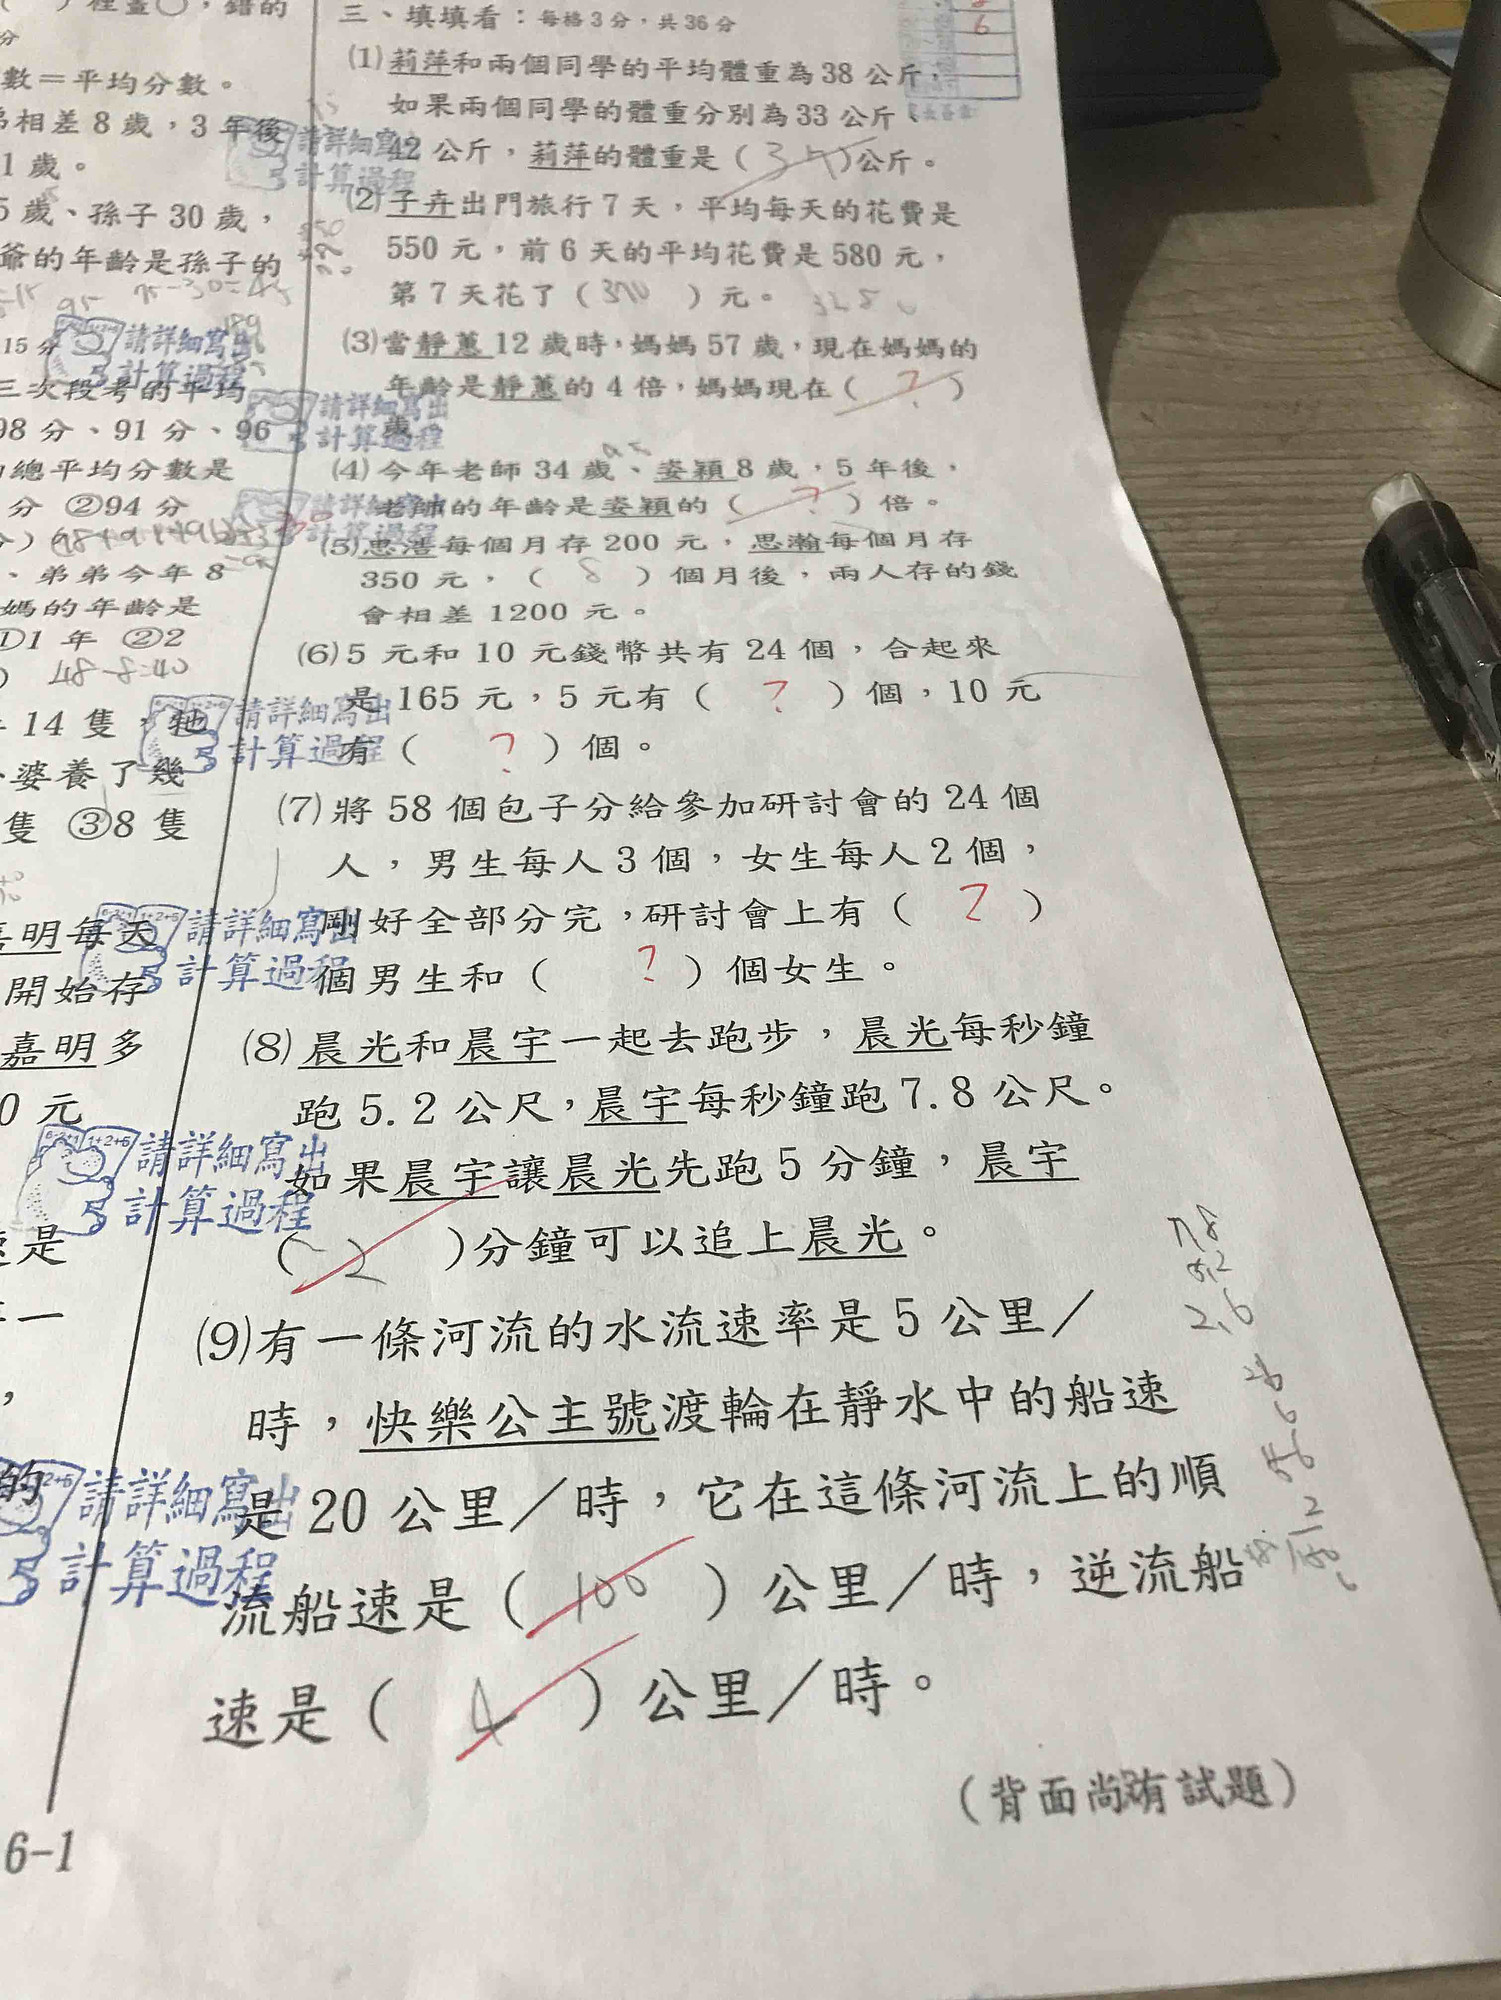 數＝平均分數。
相差8歲，3年後
1歲。
5歲、孫子30歲，
爺的年齡是孫子的
15分
三次段考的平均
98分、91分、96
總平均分數是
分 ②94分
、弟弟今年8
媽的年齡是
①1年 ②2
48-8=40
14隻，牠
婆養了幾
隻 ③8隻
嘉明每天
開始存
嘉明多
0元
是
一
的
6-1
三、填填看：每格3分，共36分
6
(1)莉萍和兩個同學的平均體重為38公斤，
如果兩個同學的體重分別為33公斤、
42公斤，莉萍的體重是（ ）公斤。
(2)子卉出門旅行7天，平均每天的花費是
550元，前6天的平均花費是580元，
第7天花了（370）元。
(3)當靜蕙12歲時，媽媽57歲，現在媽媽的
年齡是靜蕙的4倍，媽媽現在（？）
歲。
(4)今年老師34歲、姿穎8歲，5年後，
老師的年齡是姿穎的（？）倍。
(5)思浩每個月存200元，思瀚每個月存
350元，（8）個月後，兩人存的錢
會相差1200元。
(6)5元和10元錢幣共有24個，合起來
是165元，5元有（？）個，10元
有（？）個。
(7)將58個包子分給參加研討會的24個
人，男生每人3個，女生每人2個，
剛好全部分完，研討會上有（？）
個男生和（？）個女生。
(8)晨光和晨宇一起去跑步，晨光每秒鐘
跑5.2公尺，晨宇每秒鐘跑7.8公尺。
如果晨宇讓晨光先跑5分鐘，晨宇
（2）分鐘可以追上晨光。
(9)有一條河流的水流速率是5公里／
時，快樂公主號渡輪在靜水中的船速
是20公里／時，它在這條河流上的順
流船速是（100）公里／時，逆流船
速是（4）公里／時。
（背面尚有試題）
7.8
5.2
2.6
請詳細寫出
計算過程
請詳細寫出
計算過程
請詳細寫出
計算過程
請詳細寫出
計算過程
請詳細寫出
計算過程
請詳細寫出
計算過程
請詳細寫出
計算過程
請詳細寫出
計算過程